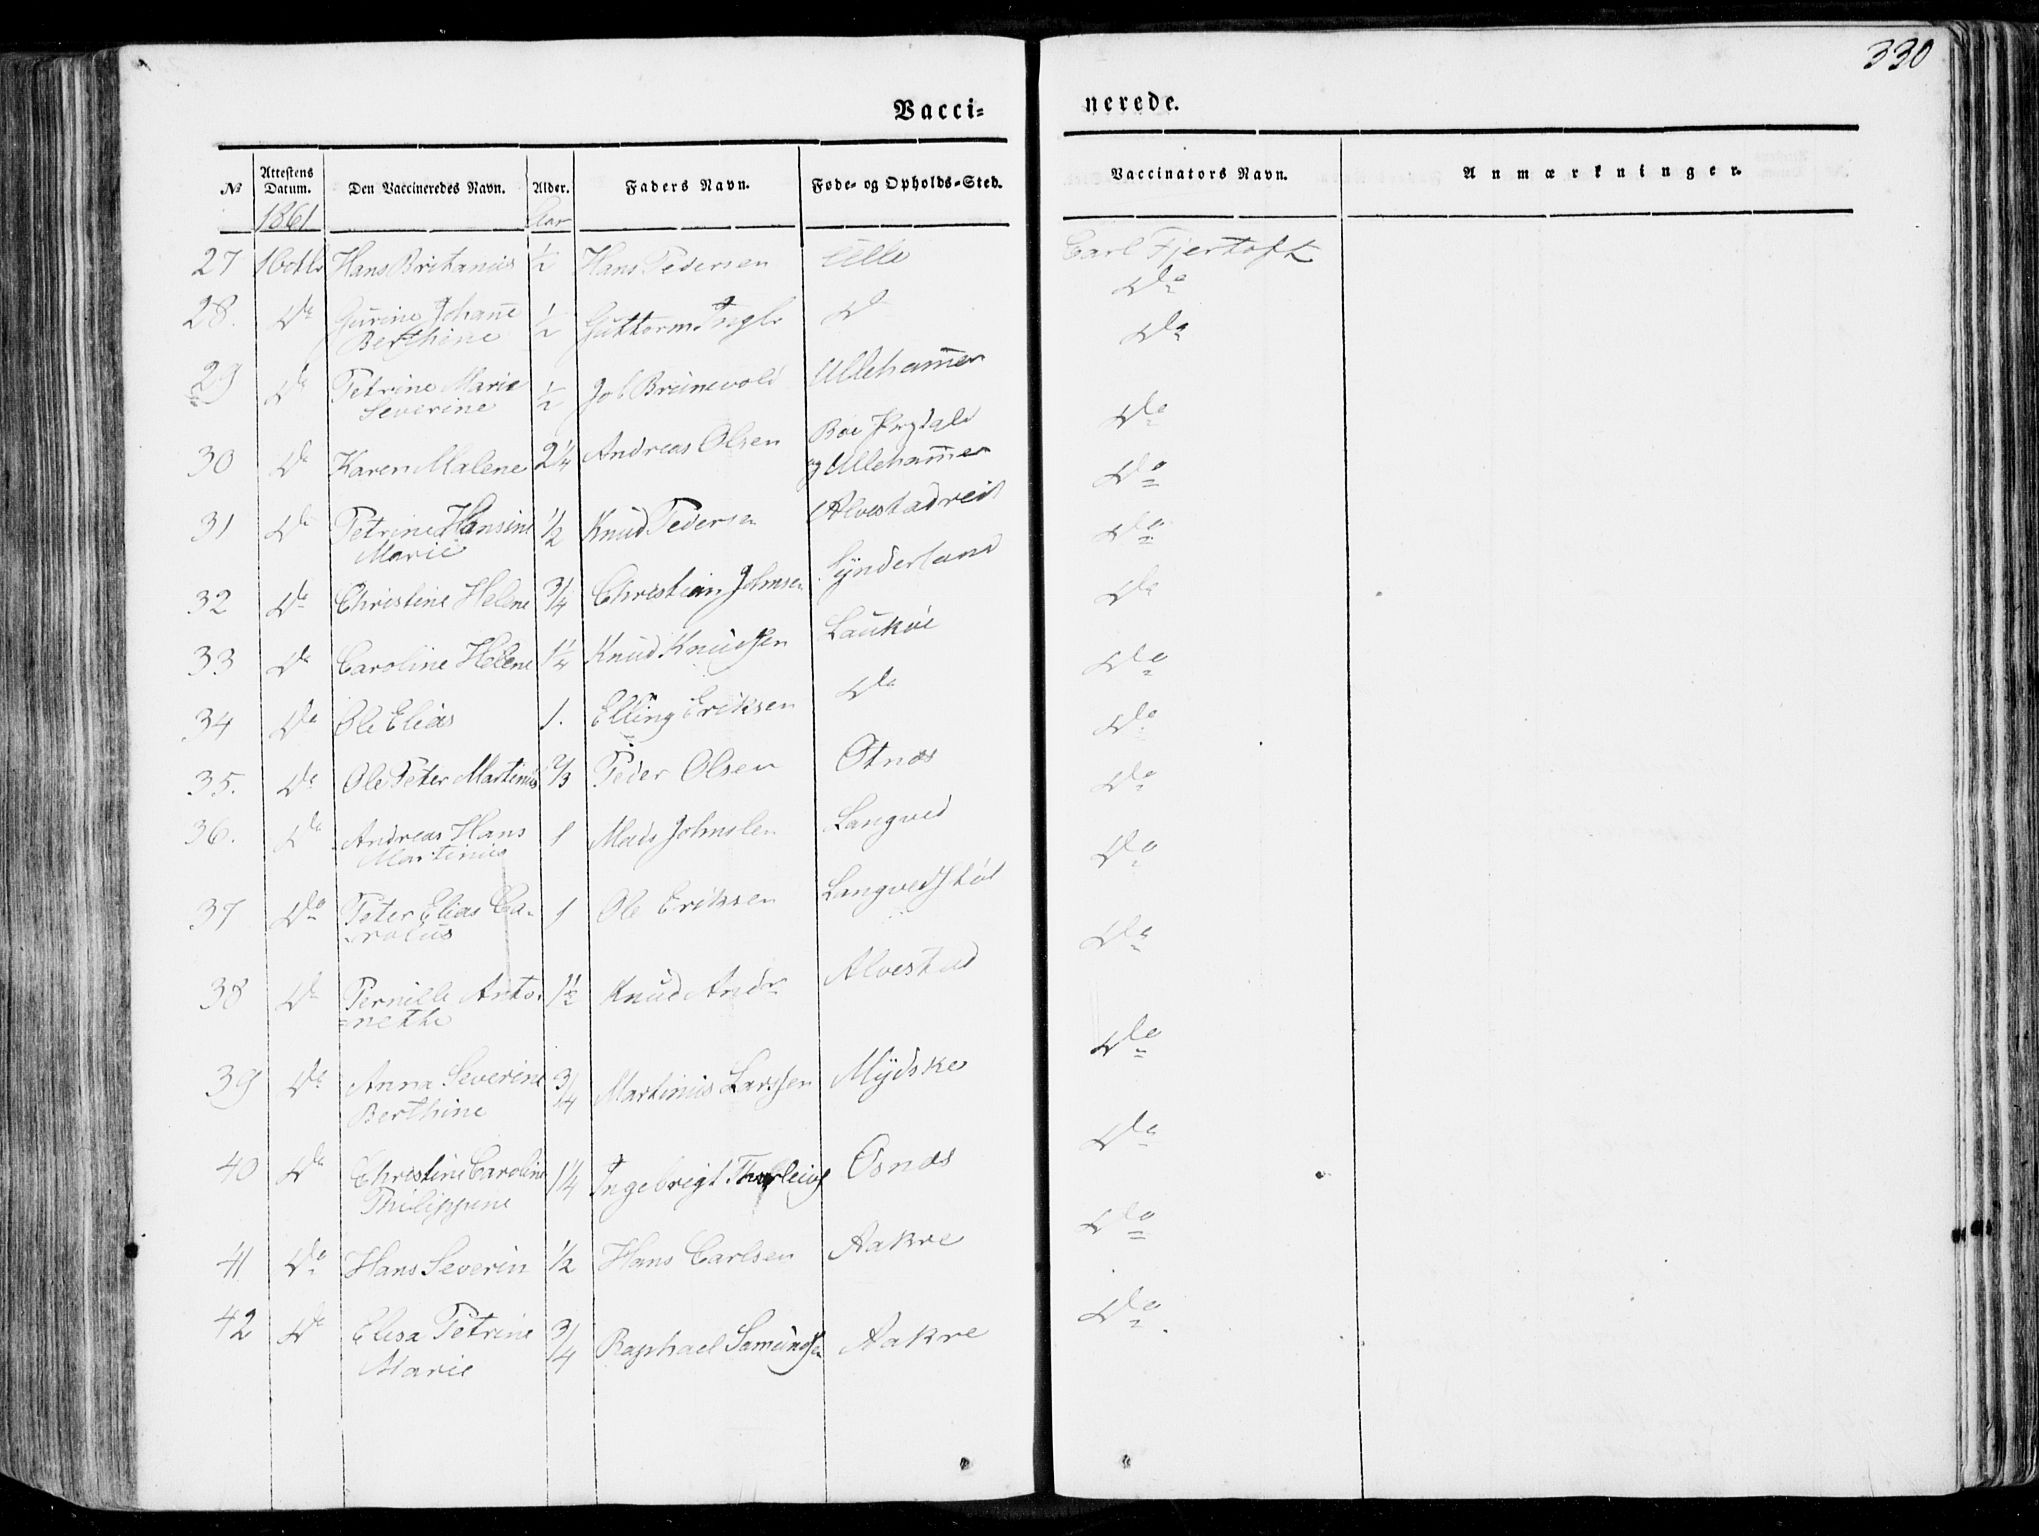 330
Vacci-
nerede.
No Attestens Datum. Den Vaccineredes Navn. Alder. Faders Navn. Føde- og Opholds-Sted. Vaccinators Navn. Anmærkninger.
1861 Aar
27 16 Hans Britanius ½ Hans Pedersen Ulle Carl Fjertoft
28. Do Gurine Johanne ½ Guttorm Do Do
Berthine
29 Do Petrine Marie ½ Job Brunevold Ullehammer Do
Severine
30 Do Karen Malene 2¼ Andreas Olsen Boe Do
og Ullehammer
31 Do Petrine Hansine ½ Knud Pedersen Alvestadreit Do
Marie
32 Do Christine Helene ¾ Christian Johnsen Synderland Do
33 Do Caroline Helene 1¼ Knud Knudsen Laukøe Do
34 Do Ole Elias 1. Elling Eriksen Do Do
35. Do Ole Peter Martinus ⅔ Peder Olsen Otnæs Do
36. Do Andreas Hans 1 Mads Johnsen Langved Do
Martinus
37 Do Peter Elias Ca- 1 Ole Eriksen Langvedstøl Do
rolus
38 Do Pernille Anto- 1½ Knud Andr Alvestad Do
=nette
39 Do Anna Severine ¾ Martinus Larssen Mydske Do
Berthine
40 Do Christine Caroline 1¼ Ingebrigt Osnæs Do
Philippine
41 Do Hans Severin ½ Hans Carlsen Aakre Do
42 Do Elisa Petrine ¾ Raphael Samundsen Aakre Do
Marie